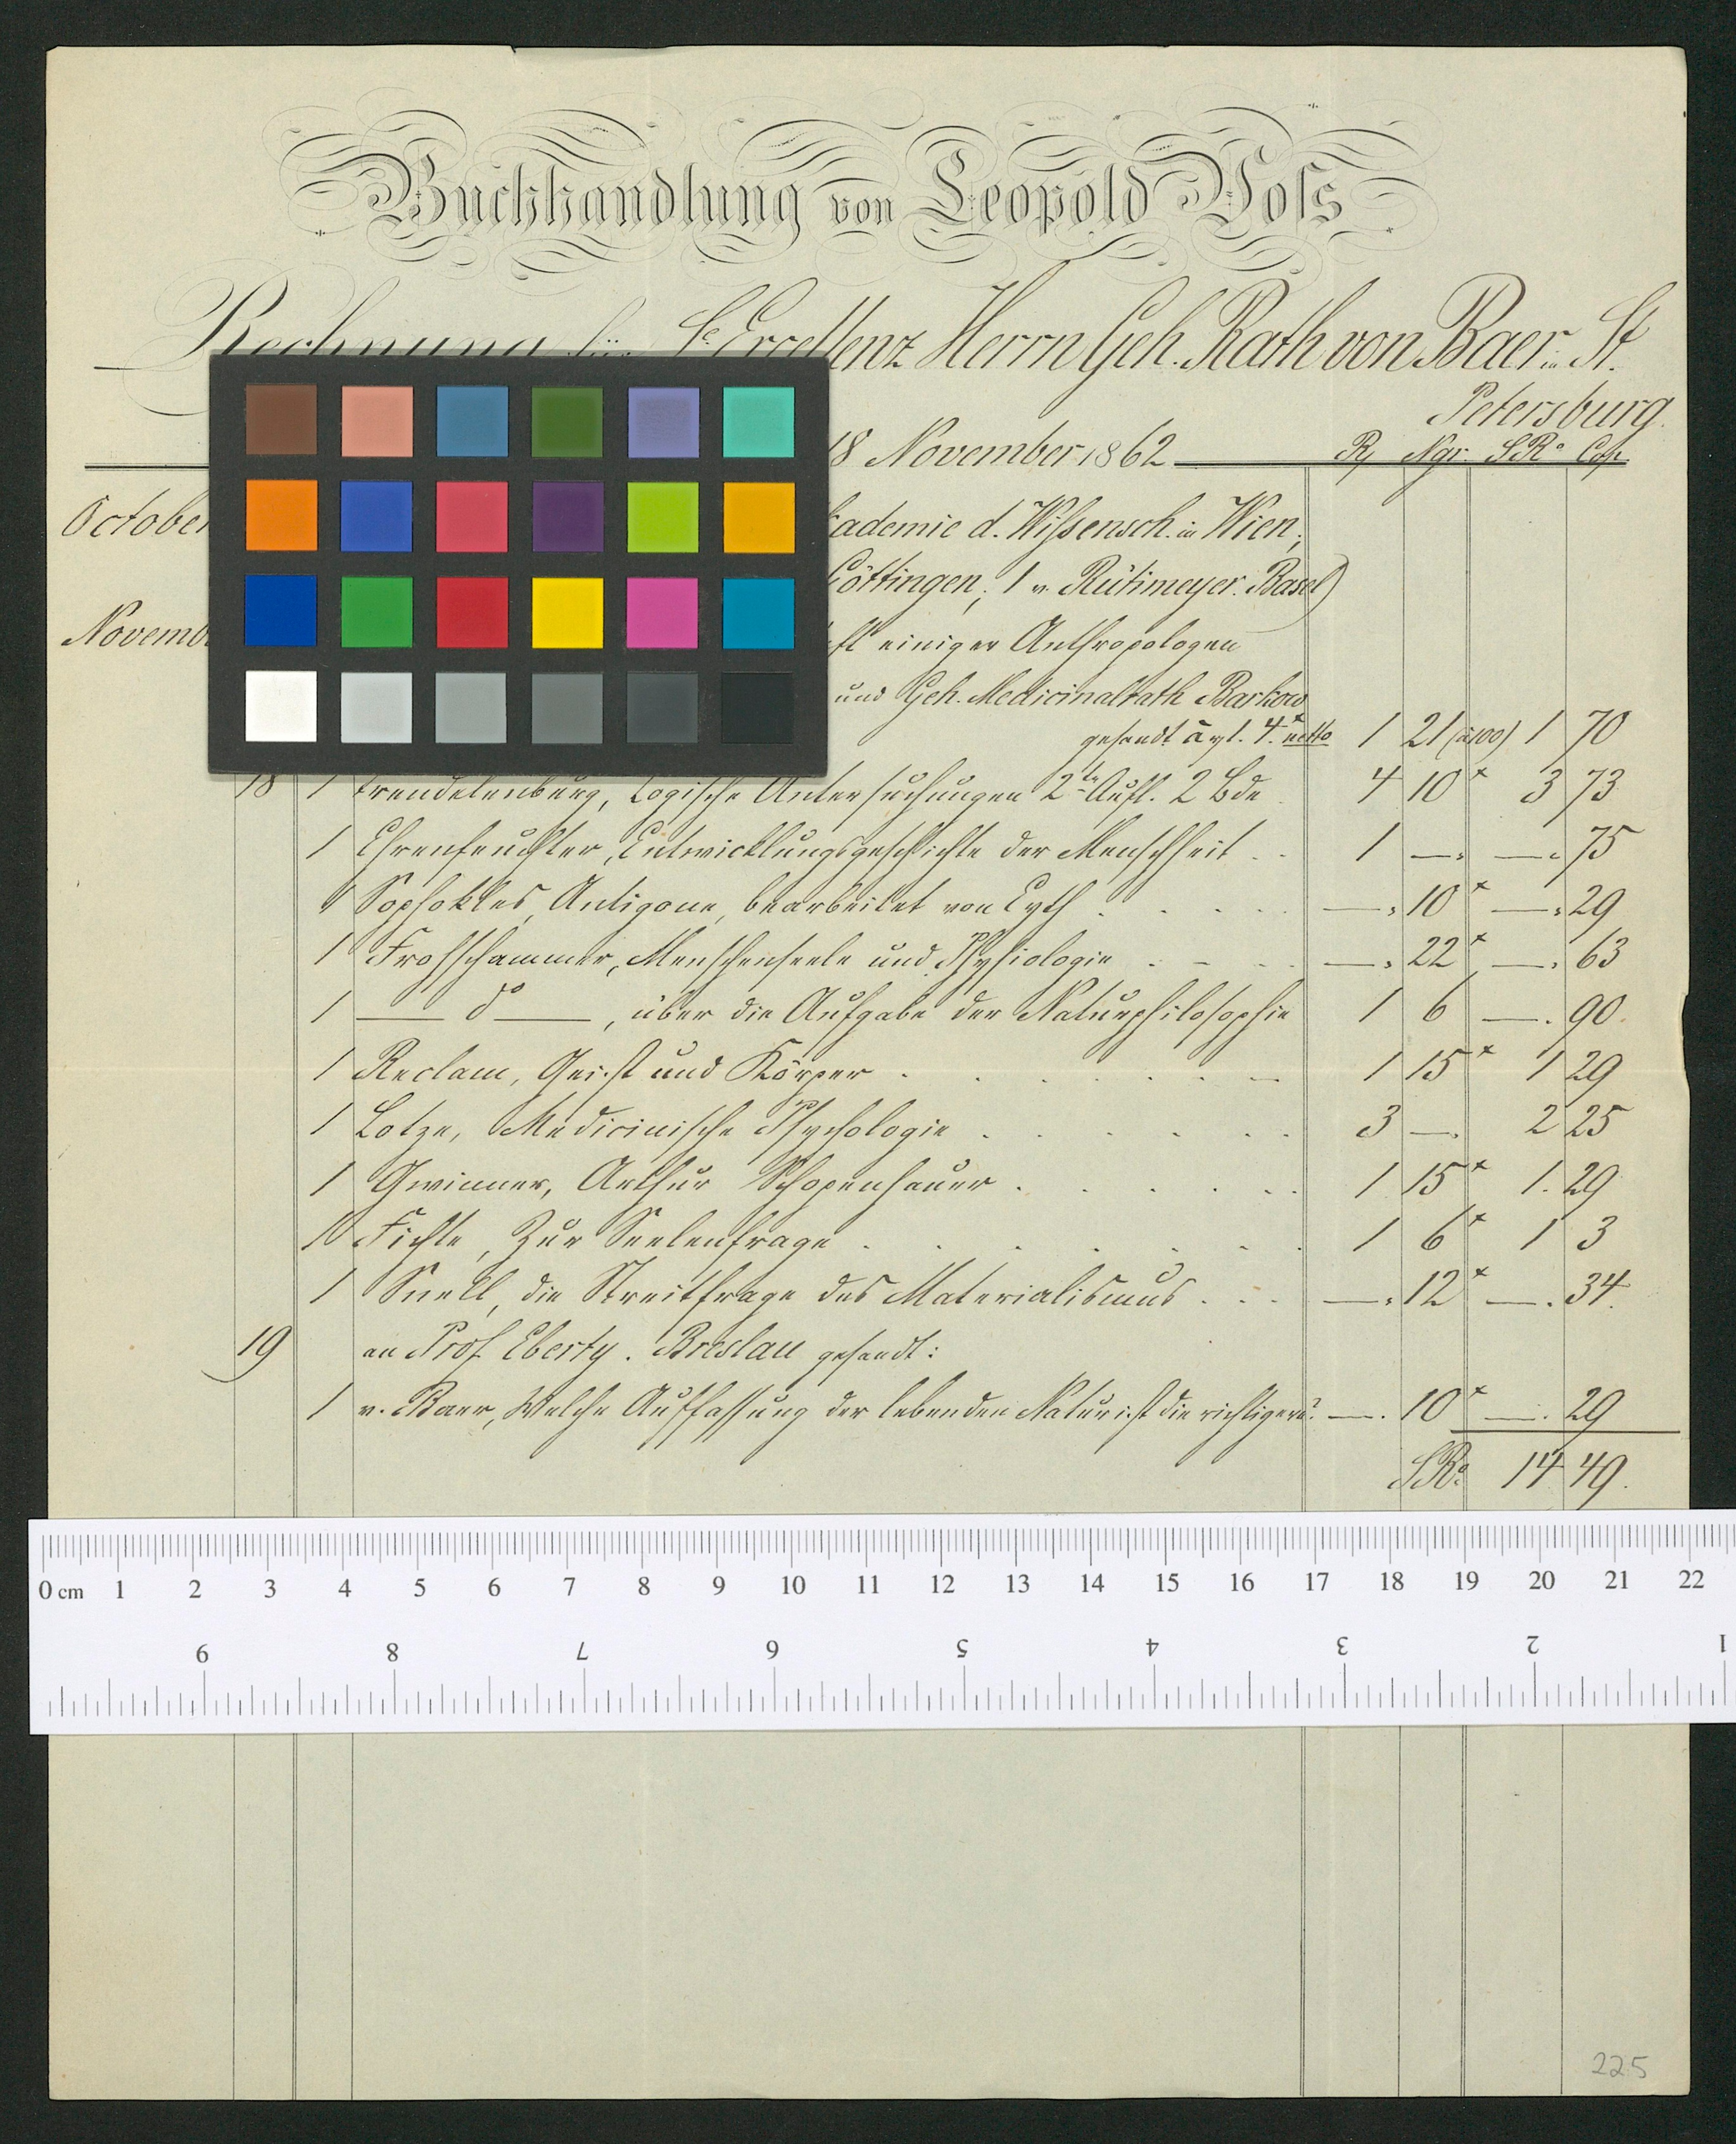 Buchhandlung von Leopold Voss
Rechnung für Sr. Excellenz Herrn Geh. Rath von Baer in St.
Petersburg.
18 November 1862 Rf Ngr. SRo Cop.
October
kademie d. Wissensch. in Wien;
Göttingen; 1 v. Rütimeyer. Basel)
Novemb
ft einiger Anthropologen
und Geh. Medicinalrath Barkow
gesandt à 4 netto 1 21 (à100) 1 70
18 1 Trendelenburg, Logische Untersuchungen 2te Aufl. 2 Bde 4 10 x 3 73
1 Ehrenfeuchter, Entwicklungsgeschichte der Menschheit . . 1 — — 75
1 Sophokles, Antigone, bearbeitet von Eyth . . . . — 10 x — 29
1 Frohschammer, Menschenseele und Physiologie . . . — 22 x — 63
1 — do —, über die Aufgabe der Naturphilosophie 1 6 — 90.
1 Reclam, Geist und Körper . . . . . . 1 15 x 1 29
1 Lotze, Medicinische Psychologie . . . . . . 3 — 2 25
1 Gwinner, Arthur Schopenhauer . . . . . . 1 15 x 1. 29
1 Fichte, Zur Seelenfrage . . . . . . . 1 6 x 1 3
1 Snell, die Streitfrage des Materialismus . . . — 12 x — 34.
19 an Prof. Eberty. Breslau gesandt:
1 v. Baer, Welche Auffassung der lebenden Natur ist die richtige? — 10 x — 29
SRo 14 49.
0 cm 1 2 3 4 5 6 7 8 9 10 11 12 13 14 15 16 17 18 19 20 21 22
9 8 7 6 5 4 3 2 1
225